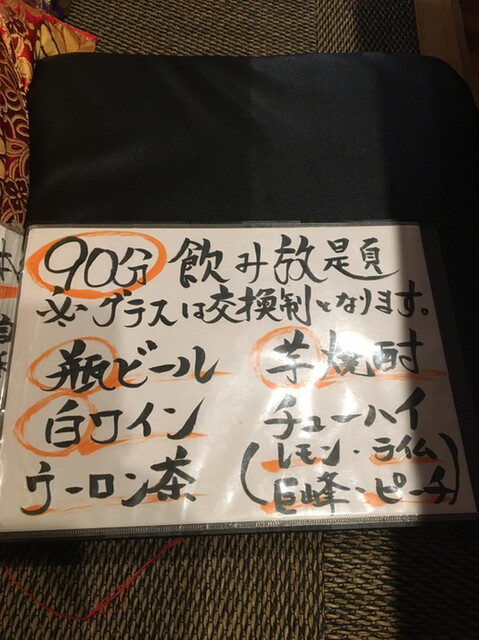 90分 飲み放題
※グラスは交換制となります。
瓶ビール 芋焼酎
白ワイン チューハイ
ウーロン茶 (レモン・ライム
巨峰・ピーチ)